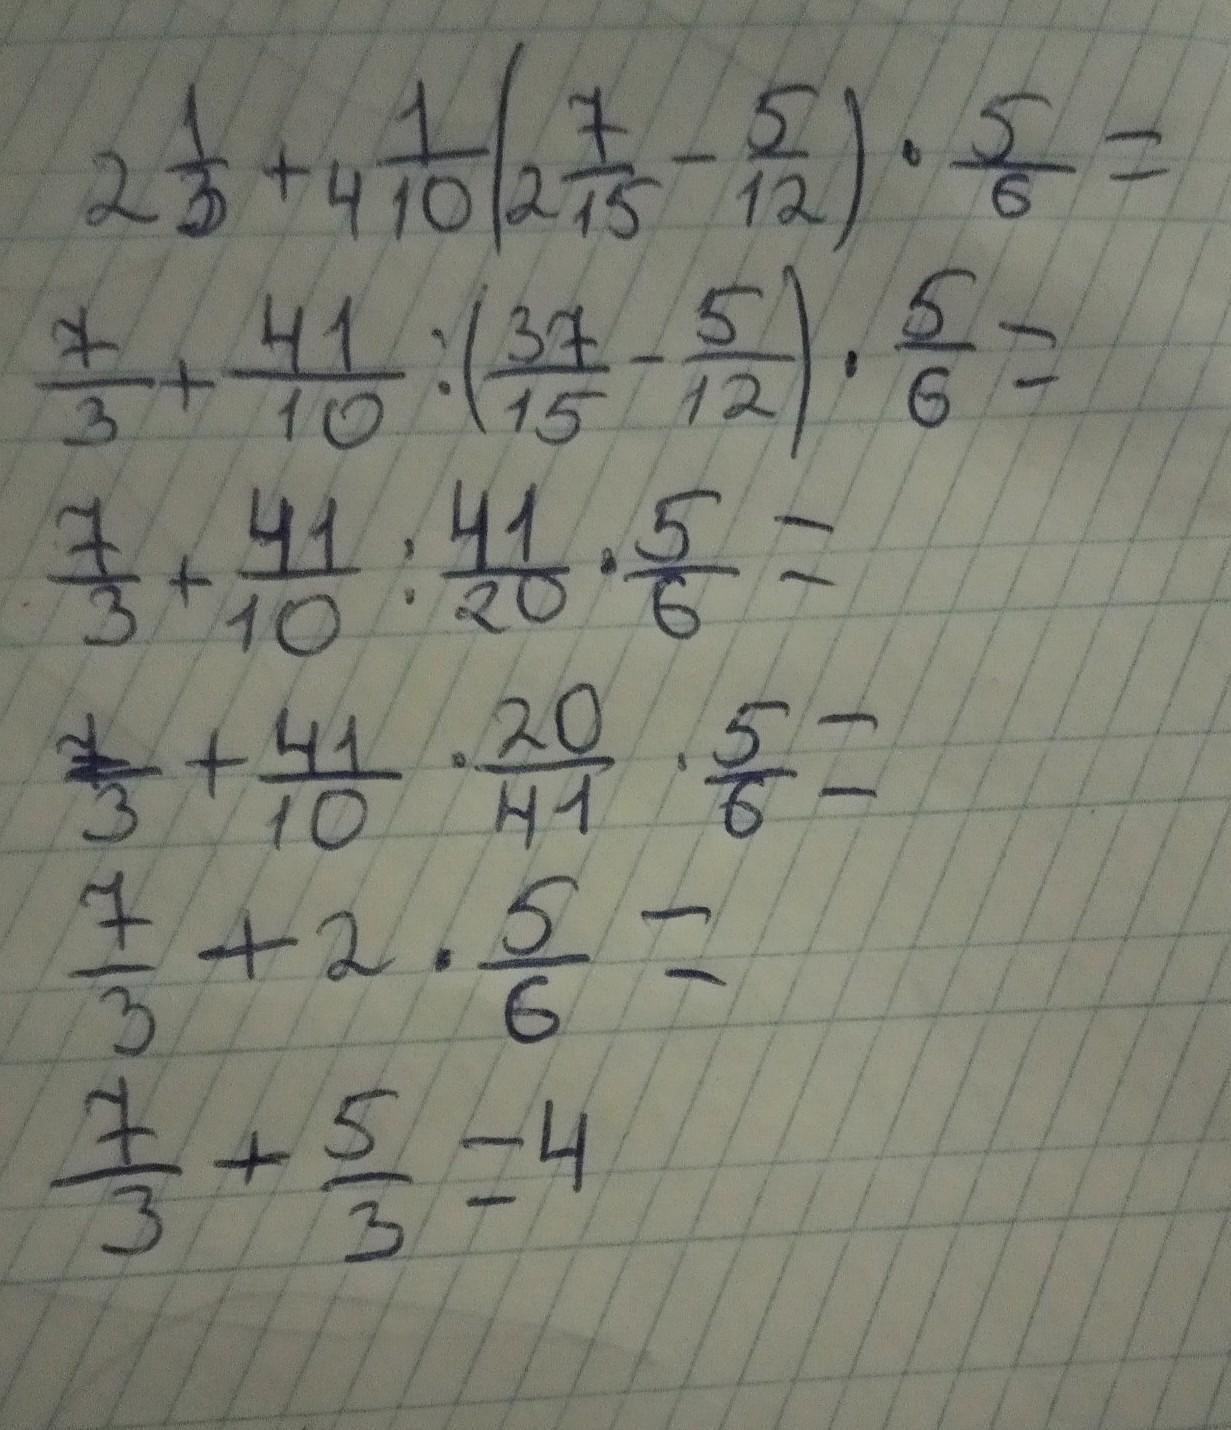 2 1/3 + 4 1/10 (2 7/15 - 5/12) · 5/6 =
7/3 + 41/10 : (37/15 - 5/12) · 5/6 =
7/3 + 41/10 : 41/20 · 5/6 =
7/3 + 41/10 · 20/41 · 5/6 =
7/3 + 2 · 5/6 =
7/3 + 5/3 = 4